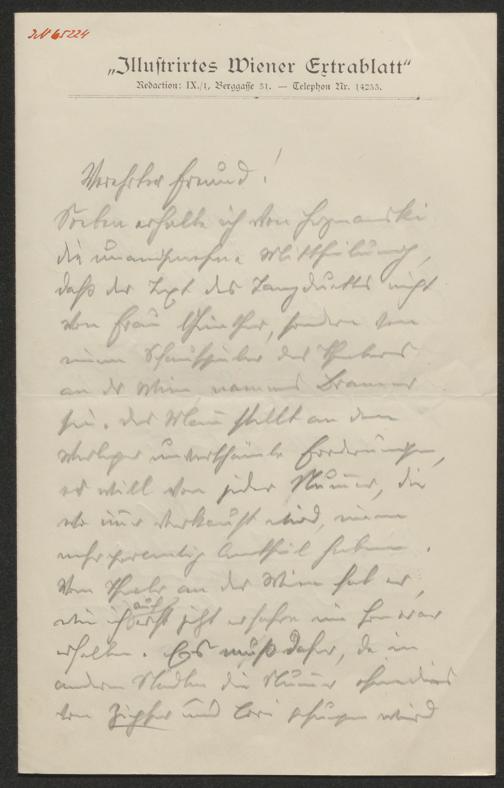 JN 65224
„Illustrirtes Wiener Extrablatt“
Redaction: IX./1, Berggasse 31. — Telephon Nr. 14255.
Verehrter Freund!
Soeben erhalte ich von
die unangenehme Mittheilung,
daß der Text des Tanzduetts nicht
von Frau Günther, sondern von
einem Schauspieler des Theaters
an der Wien, namens
sei. Der Mann stellt an den
Verleger unverschämte Forderungen,
er will von jeder Nummer, die
wo nur verkauft wird, einen
mehrprocentig Antheil haben.
Vom Theater an der Wien hat er,
wie ich auch erst jetzt erfahre ein Honorar
erhalten. Es muß daher, da in
andern Städten die Nummer ohnedies
von und wird